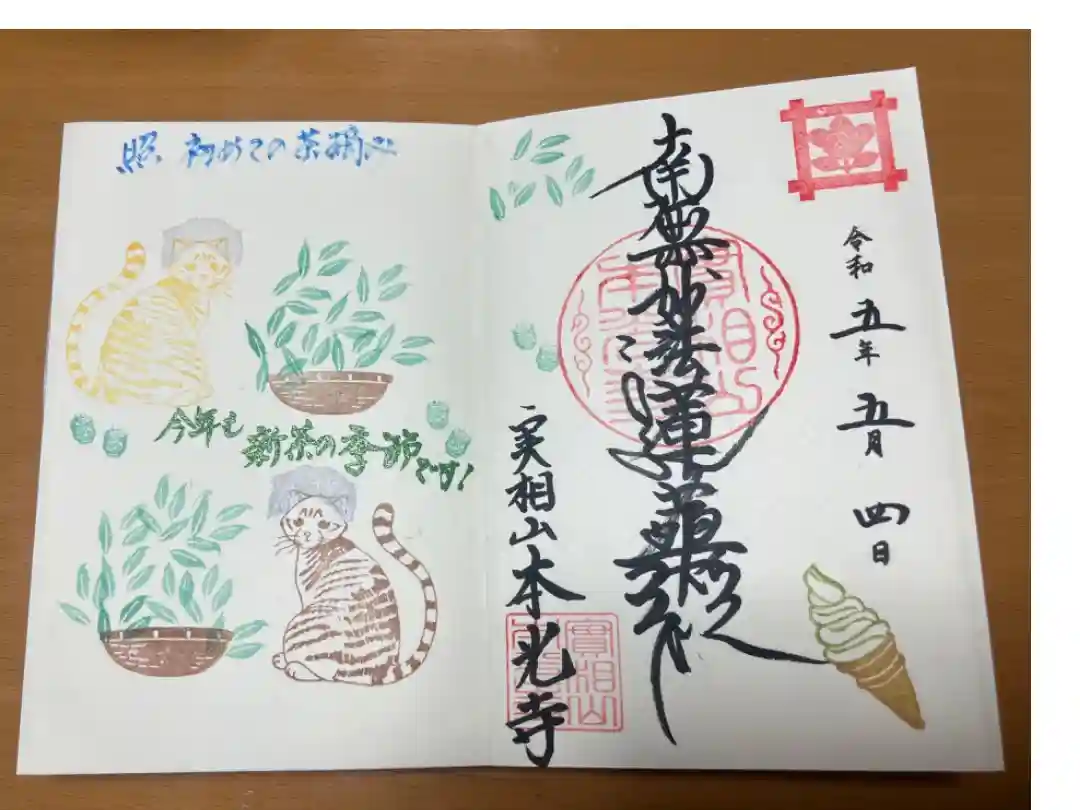 令和五年五月四日
南無妙法蓮華経
実相山本光寺
實相山
照 初めての茶摘み
今年も
新茶の季節です!